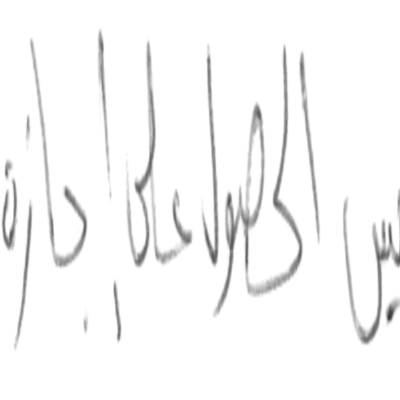 الحصول على إجازة